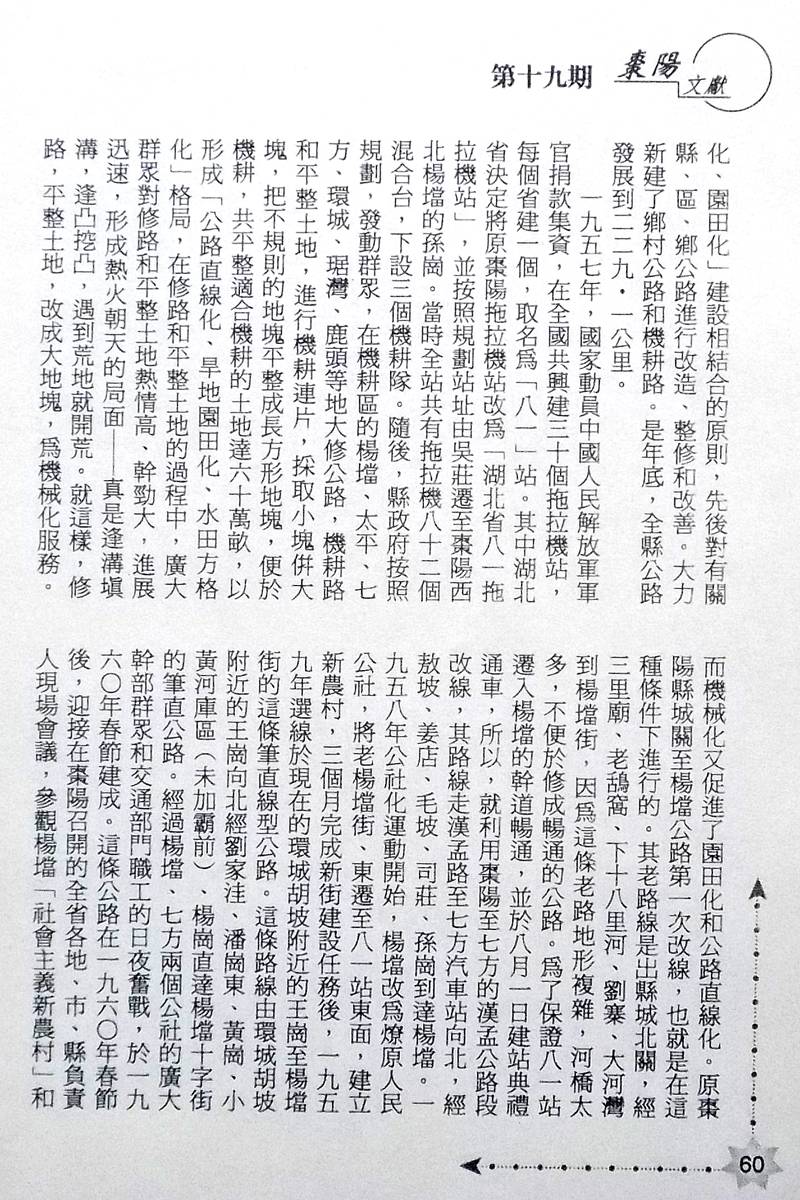 第十九期 棗陽
文獻
化、園田化」建設相結合的原則，先後對有關
縣、區、鄉公路進行改造、整修和改善。大力
新建了鄉村公路和機耕路。是年底，全縣公路
發展到二二九·一公里。
一九五七年，國家動員中國人民解放軍軍
官捐款集資，在全國共興建三十個拖拉機站，
每個省建一個，取名爲「八一」站。其中湖北
省決定將原棗陽拖拉機站改爲「湖北省八一拖
拉機站」，並按照規劃站址由吳莊遷至棗陽西
北楊壋的孫崗。當時全站共有拖拉機八十二個
混合台，下設三個機耕隊。隨後，縣政府按照
規劃，發動群眾，在機耕區的楊壋、太平、七
方、環城、琚灣、鹿頭等地大修公路，機耕路
和平整土地，進行機耕連片，採取小塊併大
塊，把不規則的地塊平整成長方形地塊，便於
機耕，共平整適合機耕的土地達六十萬畝，以
形成「公路直線化、旱地園田化、水田方格
化」格局，在修路和平整土地的過程中，廣大
群眾對修路和平整土地熱情高、幹勁大，進展
迅速，形成熱火朝天的局面——真是逢溝填
溝，逢凸挖凸，遇到荒地就開荒。就這樣，修
路，平整土地，改成大地塊，爲機械化服務。
而機械化又促進了園田化和公路直線化。原棗
陽縣城關至楊壋公路第一次改線，也就是在這
種條件下進行的。其老路線是出縣城北關，經
三里廟、老鴰窩、下十八里河、劉寨、大河灣
到楊壋街，因爲這條老路地形複雜，河橋太
多，不便於修成暢通的公路。爲了保證八一站
遷入楊壋的幹道暢通，並於八月一日建站典禮
通車，所以，就利用棗陽至七方的漢孟公路段
改線，其路線走漢孟路至七方汽車站向北，經
敖坡、姜店、毛坡、司莊、孫崗到達楊壋。一
九五八年公社化運動開始，楊壋改爲燎原人民
公社，將老楊壋街、東遷至八一站東面，建立
新農村，三個月完成新街建設任務後，一九五
九年選線於現在的環城胡坡附近的王崗至楊壋
街的這條筆直線型公路。這條路線由環城胡坡
附近的王崗向北經劉家洼、潘崗東、黃崗、小
黃河庫區（未加霸前）、楊崗直達楊壋十字街
的筆直公路。經過楊壋、七方兩個公社的廣大
幹部群眾和交通部門職工的日夜奮戰，於一九
六〇年春節建成。這條公路在一九六〇年春節
後，迎接在棗陽召開的全省各地、市、縣負責
人現場會議，參觀楊壋「社會主義新農村」和
60